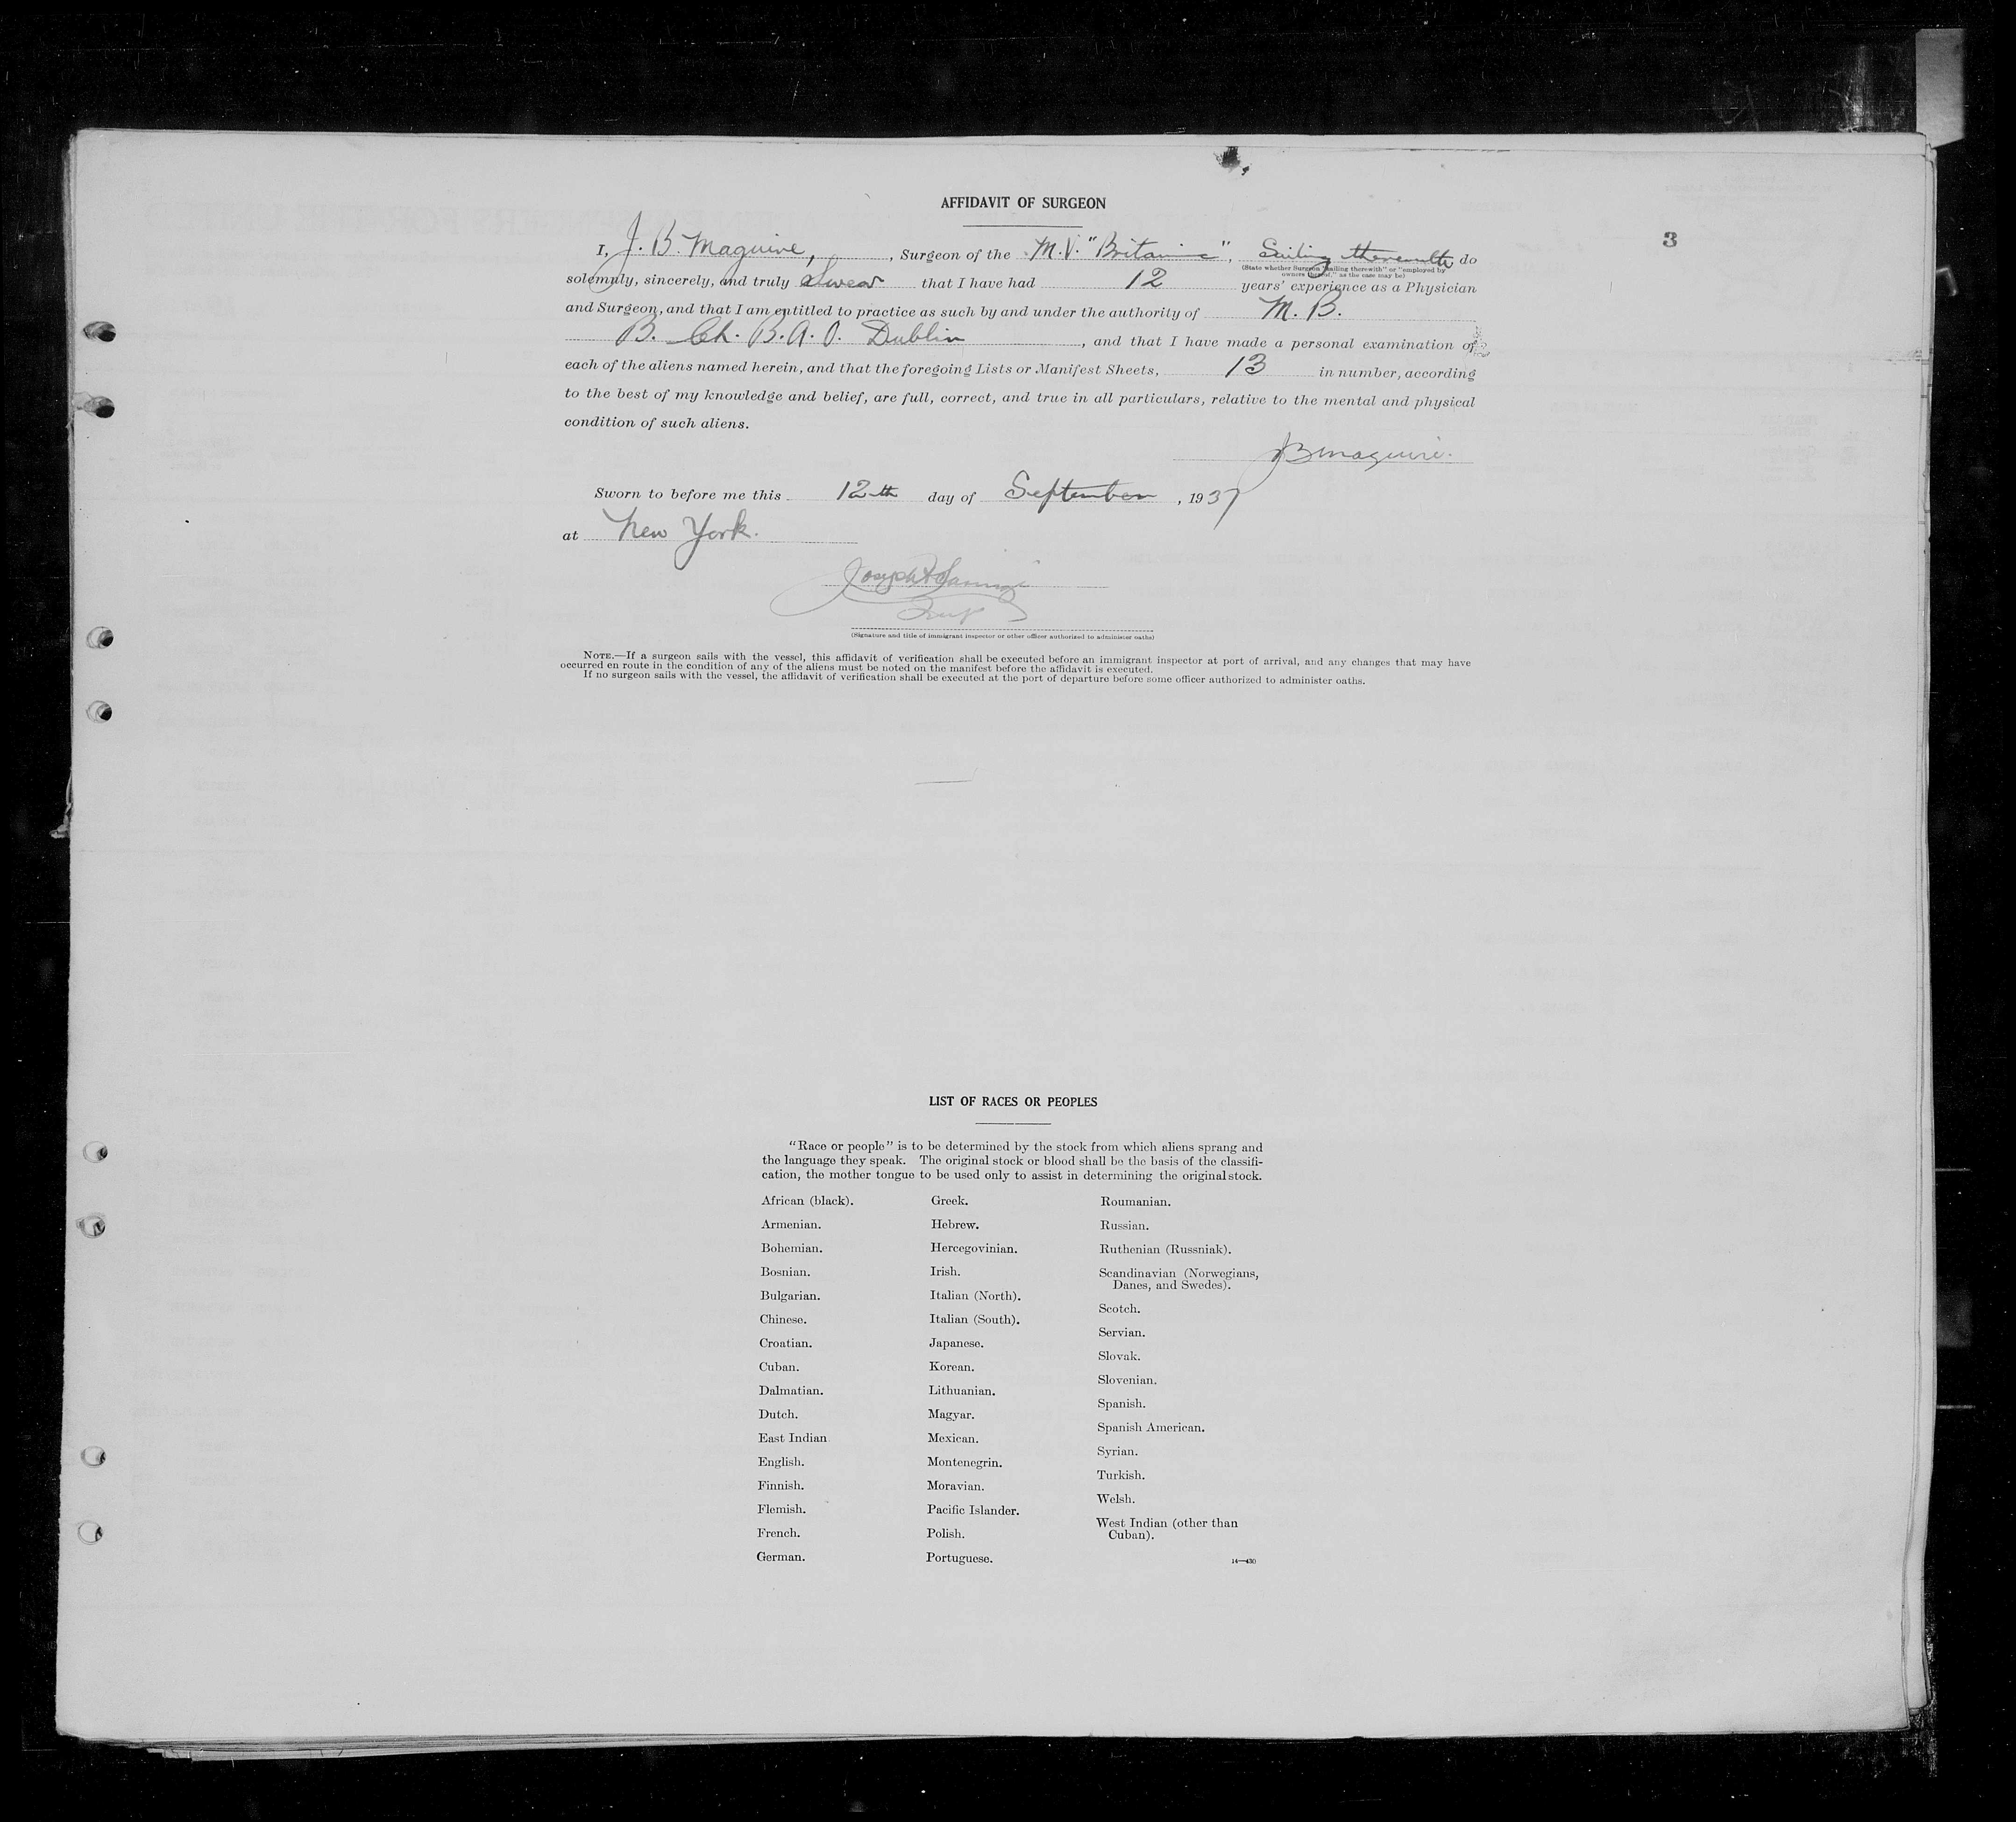 3
AFFIDAVIT OF SURGEON
I, J. B. Maguire, , Surgeon of the M.V. "Britannic", Sailing therewith do
(State whether Surgeon "sailing therewith" or "employed by
owners thereof," as the case may be)
solemnly, sincerely, and truly Swear that I have had 12 years' experience as a Physician
and Surgeon, and that I am entitled to practice as such by and under the authority of M. B.
B. Ch. B.A.O. Dublin , and that I have made a personal examination of
each of the aliens named herein, and that the foregoing Lists or Manifest Sheets, 13 in number, according
to the best of my knowledge and belief, are full, correct, and true in all particulars, relative to the mental and physical
condition of such aliens.
JBMaguire.
Sworn to before me this 12th day of September , 1937
at New York.
Joseph
Insp
(Signature and title of immigrant inspector or other officer authorized to administer oaths)
NOTE.—If a surgeon sails with the vessel, this affidavit of verification shall be executed before an immigrant inspector at port of arrival, and any changes that may have
occurred en route in the condition of any of the aliens must be noted on the manifest before the affidavit is executed.
If no surgeon sails with the vessel, the affidavit of verification shall be executed at the port of departure before some officer authorized to administer oaths.
LIST OF RACES OR PEOPLES
"Race or people" is to be determined by the stock from which aliens sprang and
the language they speak. The original stock or blood shall be the basis of the classifi-
cation, the mother tongue to be used only to assist in determining the original stock.
African (black).
Armenian.
Bohemian.
Bosnian.
Bulgarian.
Chinese.
Croatian.
Cuban.
Dalmatian.
Dutch.
East Indian
English.
Finnish.
Flemish.
French.
German.
Greek.
Hebrew.
Hercegovinian.
Irish.
Italian (North).
Italian (South).
Japanese.
Korean.
Lithuanian.
Magyar.
Mexican.
Montenegrin.
Moravian.
Pacific Islander.
Polish.
Portuguese.
Roumanian.
Russian.
Ruthenian (Russniak).
Scandinavian (Norwegians,
Danes, and Swedes).
Scotch.
Servian.
Slovak.
Slovenian.
Spanish.
Spanish American.
Syrian.
Turkish.
Welsh.
West Indian (other than
Cuban).
14—430